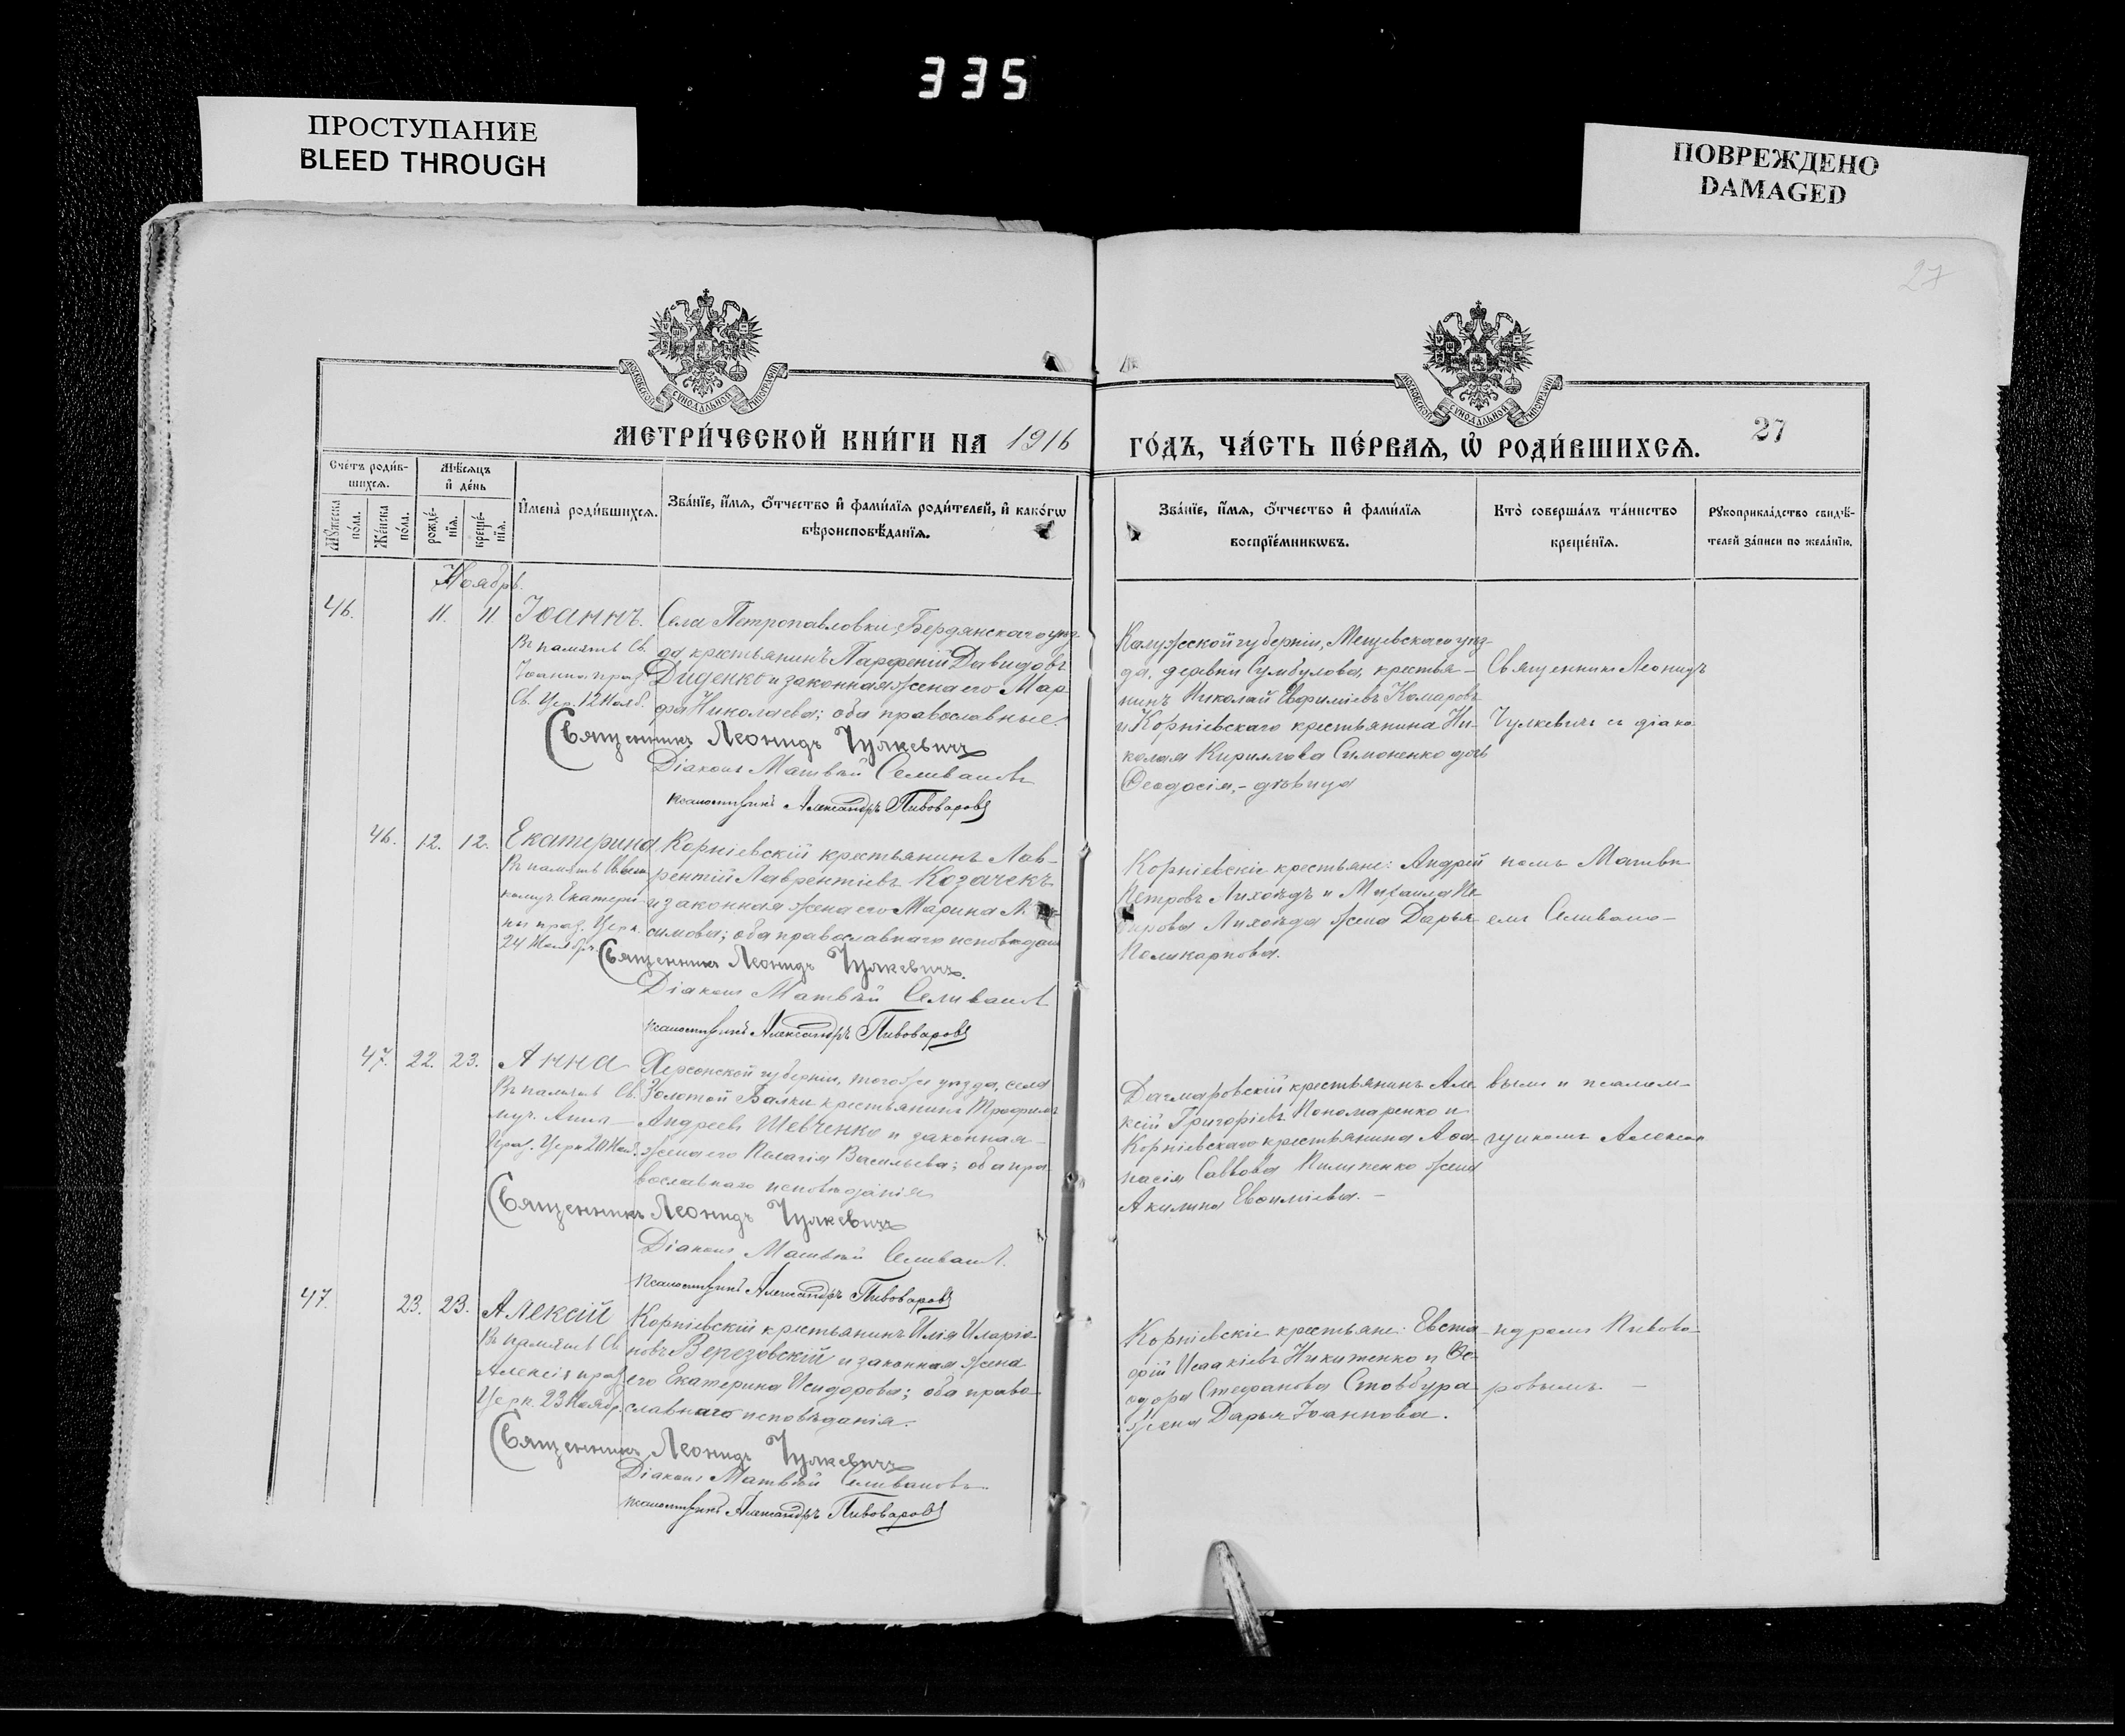 335
ПРОСТУПАНИЕ
BLEED THROUGH
ПОВРЕЖДЕНО
DAMAGED
27
МОСКОВСКОЙ СУНОДАЛЬНОЙ ТИПОГРАФІИ
МОСКОВСКОЙ СУНОДАЛЬНОЙ ТИПОГРАФІИ
МЕТРИ́ЧЕСКОЙ КНИ́ГИ НА 1916
ГО́ДЪ, ЧА́СТЬ ПЕ́РВАѦ, Ѡ҆ РОДИ́ВШИХСѦ.
27
Сче́тъ роди́в-
шихсѧ.
Мꙋ́жеска по́ла.
Же́нска по́ла.
Мѣ́сѧцъ
и҆ де́нь
рожде́-
нїѧ.
креще́-
нїѧ.
И҆мена̀ роди́вшихсѧ.
Зва́нїе, и҆́мѧ, ѻ҆́тчество и҆ фами́лїѧ роди́телей, и҆ како́гѡ
вѣроисповѣ́данїѧ.
Зва́нїе, и҆́мѧ, ѻ҆́тчество и҆ фами́лїѧ
воспрїе́мникѡвъ.
Кто̀ соверша́лъ та́инство
креще́нїѧ.
Рꙋкоприкла́дство свидѣ́-
телей за́писи по жела́нїю.
Ноябрь.
46. 11. 11 Іоаннъ.
Въ память Св.
Іоанна праз.
Св. Цер. 12 Нояб.
Села Петропавловки, Бердянскаго уѣз-
да крестьянинъ Парфеній Давидовъ
Диденко и законная жена его Мар-
фа Николаева; оба православные.
Священникъ Леонидъ Чулкевичъ
Діаконъ Матвѣй Селивановъ
Псаломщикъ Александръ Пивоваровъ
Калужской губерніи, Мещевскаго уѣз-
да, деревни Сумбулова, крестья-
нинъ Николай Евфиміевъ Комаровъ
и Корніевскаго крестьянина Ни-
колая Кириллова Симоненко дочь
Ѳеодосія, - дѣвица
Священникъ Леонидъ
Чулкевичъ съ діако-
46. 12. 12. Екатерина
Въ память Св. вели-
комуч. Екатери-
ны праз. Церк.
24 Ноября.
Корніевскій крестьянинъ Лав-
рентій Лаврентіевъ Козачекъ
и законная жена его Марина
симова; оба православнаго исповѣдан
Священникъ Леонидъ Чулкевичъ.
Діаконъ Матвѣй Селивановъ
Псаломщикъ Александръ Пивоваровъ
Корніевскіе крестьяне: Андрей
Петровъ Лихоѣдъ и Михаила
Лихоѣда жена Дарья
Поликарпова.
номъ Матвѣ-
емъ Селивано-
47. 22. 23. Анна
Въ память Св.
муч. Анны
Праз. Церк. 20 Нояб.
Херсонской губерніи, того же уѣзда, села
Золотой Балки крестьянинъ Трофимъ
Андреевъ Шевченко и законная
жена его Пелагія Васильева; оба пра-
вославнаго исповѣданія
Священникъ Леонидъ Чулкевичъ
Діаконъ Матвѣй Селивановъ.
Псаломщикъ Александръ Пивоваровъ
Дагмаровскій крестьянинъ Але-
ксій Григоріевъ Пономаренко и
Корніевскаго крестьянина Аѳа-
насія Саввова Пилипенко жена
Акилина Евѳиміева. -
вымъ и псалом-
щикомъ Алексан
47. 23. 23. Алексій
Въ память Св
Алексія праз.
Церк. 23 Ноябр.
Корніевскій крестьянинъ Илія Иларіо-
новъ Верезовскій и законная жена
его Екатерина Исидорова; оба право-
славнаго исповѣданія.
Священникъ Леонидъ Чулкевичъ
Діаконъ Матвѣй Селивановъ.
Псаломщикъ Александръ Пивоваровъ
Корніевскіе крестьяне: Евста-
фій Исаакіевъ Никитенко и Ѳе-
одора Стефанова Стовбура
жена Дарья Іоаннова.
ндромъ Пивова-
ровымъ. -